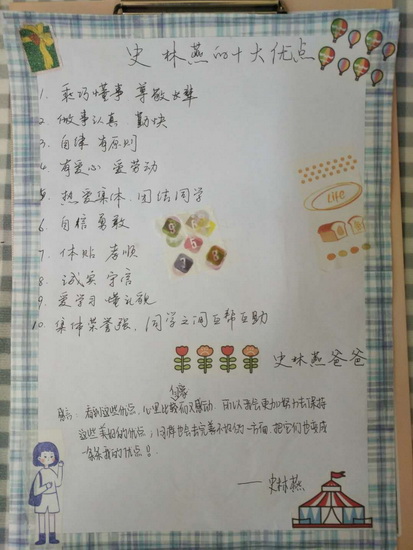 史林燕的十大优点
1. 乖巧懂事 尊敬长辈
2 做事认真 勤快
3. 自律 有原则
4. 有爱心 爱劳动
5. 热爱集体、团结同学
6 自信 勇敢
7. 体贴 孝顺
8. 诚实 守信
9. 爱学习 懂礼貌
10. 集体荣誉强、同学之间互帮互助
Life
史林燕爸爸
看到这些优点,心里比较 又感动 所以我会更加努力去保持
这些美好的优点;同时也会去完善不好的一方面,把它们也变成
的优点!
——史林燕